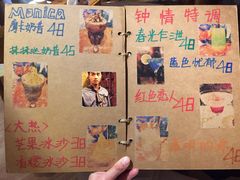 Monica
摩卡奶昔48
抹抹地奶昔45
<大热>
芒果冰沙38
有机冰沙38
钟情特调
春光乍泄
48
蓝色忧郁
48
红色恋人
48
48